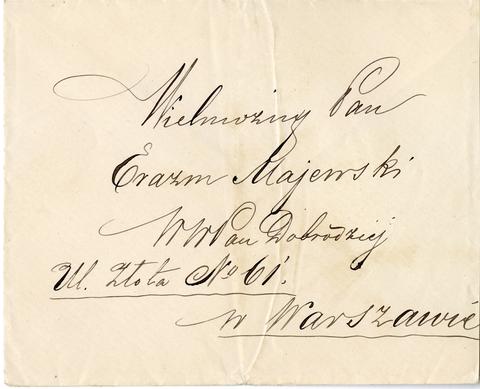 Wielmożny Pan
Erazm Majewski
WWPan Dobrodziej
Ul. Złota No 61.
w Warszawie